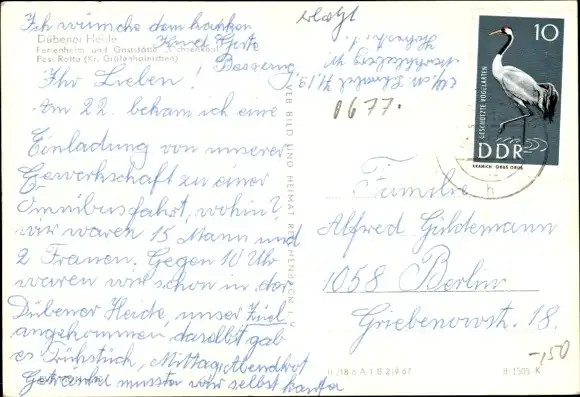 Ich wünsche dem kranken
Dübener Heide
Ferienheim und Gaststätte
Post Rotta (Kr. Gräfenhainichen)
Besserung
Ihr Lieben!
Am 22. bekam ich eine
Einladung von unserer
Gewerkschaft zu einer
Omnibusfahrt, wohin?
wir waren 15 Mann und
2 Frauen. Gegen 10 Uhr
waren wir schon in der
Dübener Heide, unser Ziel
angekommen, daselbst gab
es Frühstück, Mittag, Abendbrot
Getränke mussten wir selbst
VEB BILD UND HEIMAT REICHENBACH i. V.
0677.
10
GESCHÜTZTE VOGELARTEN
DDR
KRANICH · GRUS GRUS
Familie
Alfred Güldemann
1058 Berlin
Griebenowstr. 18.
-,50
B 1505 K